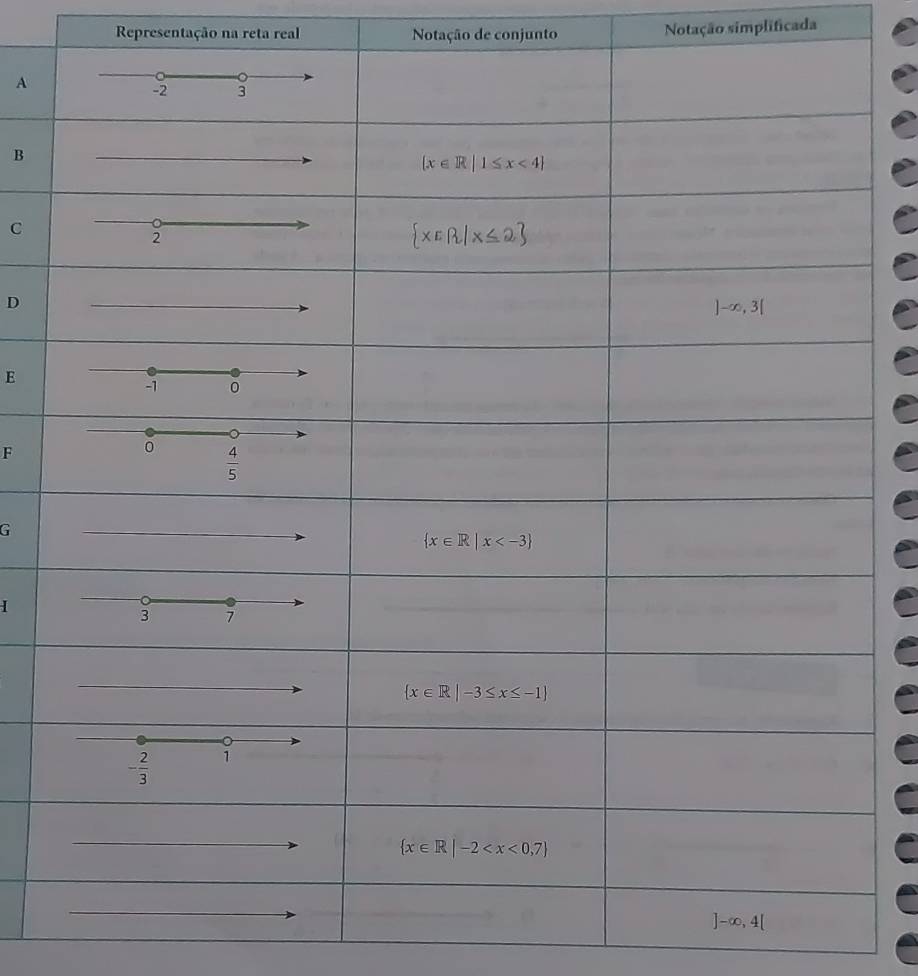 Representação na reta real Notação de conjunto Notação simplificada
A
-2 3
B
{x ∈ ℝ | 1 ≤ x < 4}
C
2
{x ∈ R | x ≤ 2}
D
]-∞, 3[
E
-1 0
F
0 4/5
G
{x ∈ ℝ | x < -3}
3 7
{x ∈ ℝ | -3 ≤ x ≤ -1}
-2/3 1
{x ∈ ℝ | -2 < x < 0,7}
]-∞, 4[